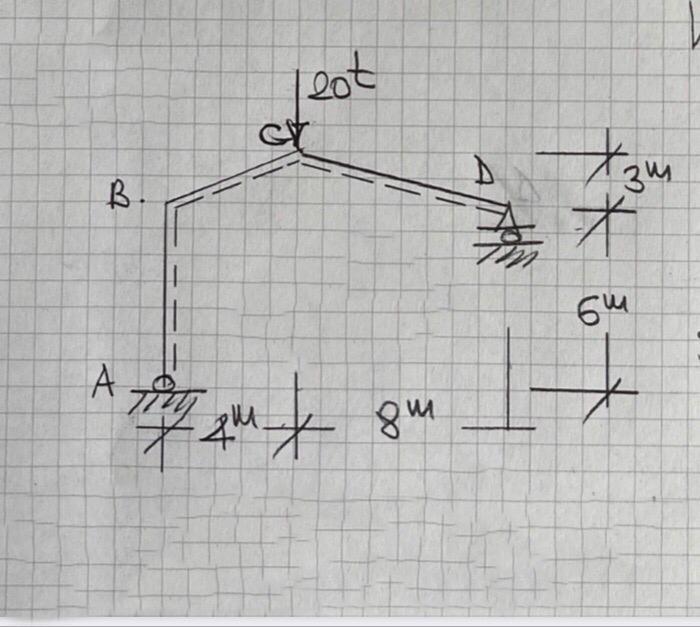 20t
C
D
3m
B.
6m
A
4m
8m